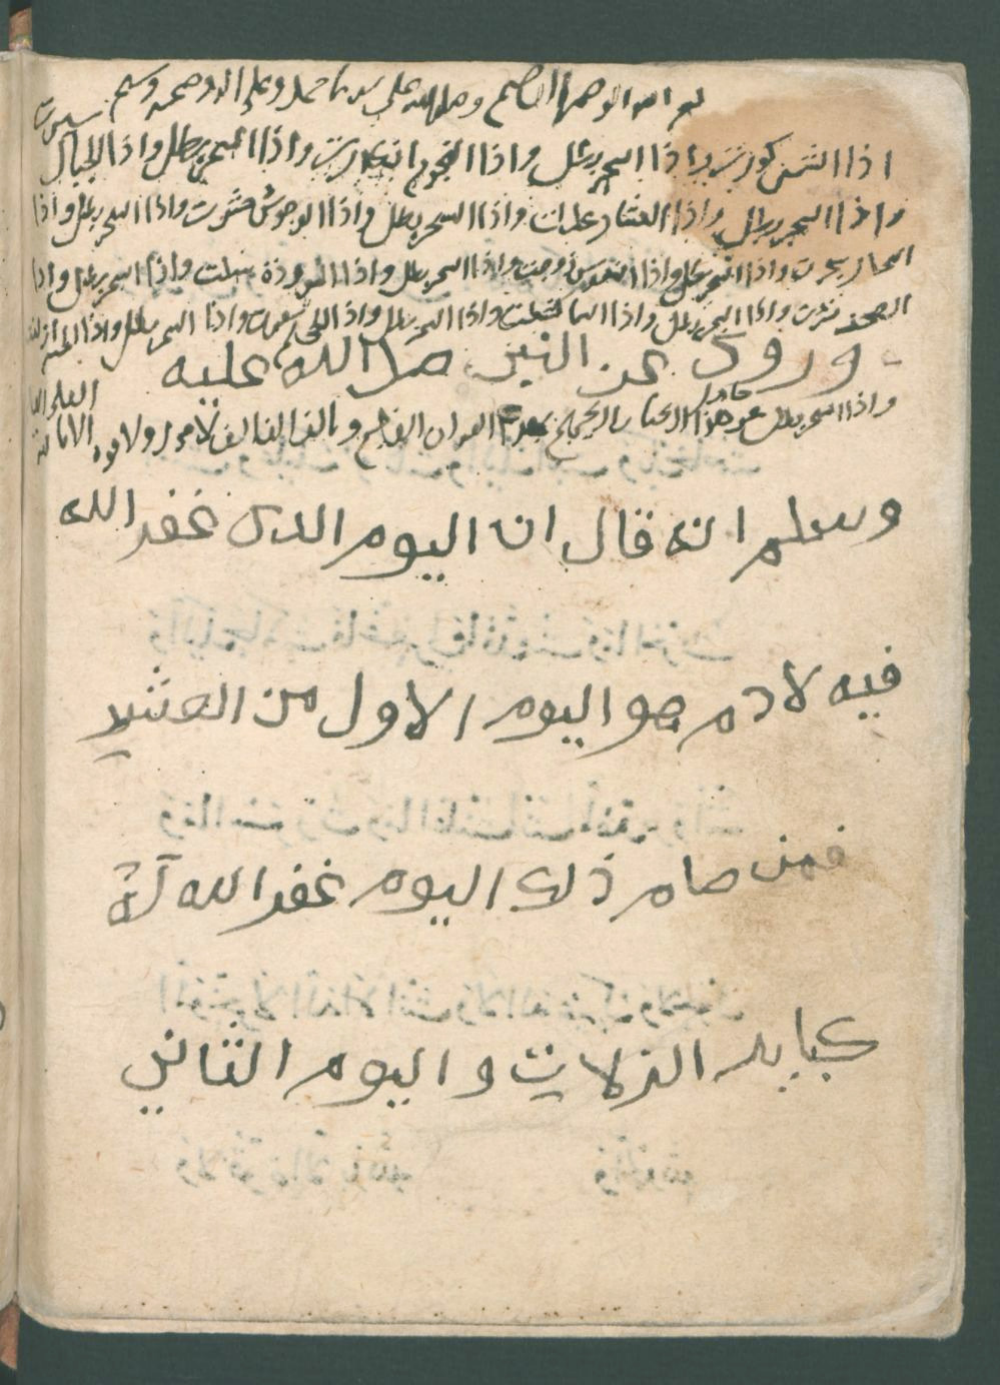 بسم الله الرحمن الرحيم وصلى الله على سيدنا محمد وعلى اله وصحبه وسلم
اذا الشمس كورت واذا السحر بطل واذا النجوم انكدرت واذا السحر بطل واذا الجبال سيرت
واذا السحر بطل واذا العشار عطلت واذا السحر بطل واذا الوحوش حشرت واذا السحر بطل واذا
البحار سجرت واذا السحر بطل واذا النفوس زوجت واذا السحر بطل واذا الموءودة سئلت واذا السحر بطل واذا
الصحف نشرت واذا السحر بطل واذا السما كشطت واذا السحر بطل واذا الجحيم سعرت واذا السحر بطل واذا الجنة ازلفت
وروي عن النبي صلى الله عليه
واذا السحر بطل عن حامل هذا الكتاب القران والف الف لا حول ولا قوة الا بالله العلي
وسلم انه قال ان اليوم الذي غفر الله
فيه لادم هو اليوم الاول من العشر
فمن صام ذلك اليوم غفر الله له
كباير الزلات و اليوم الثاني